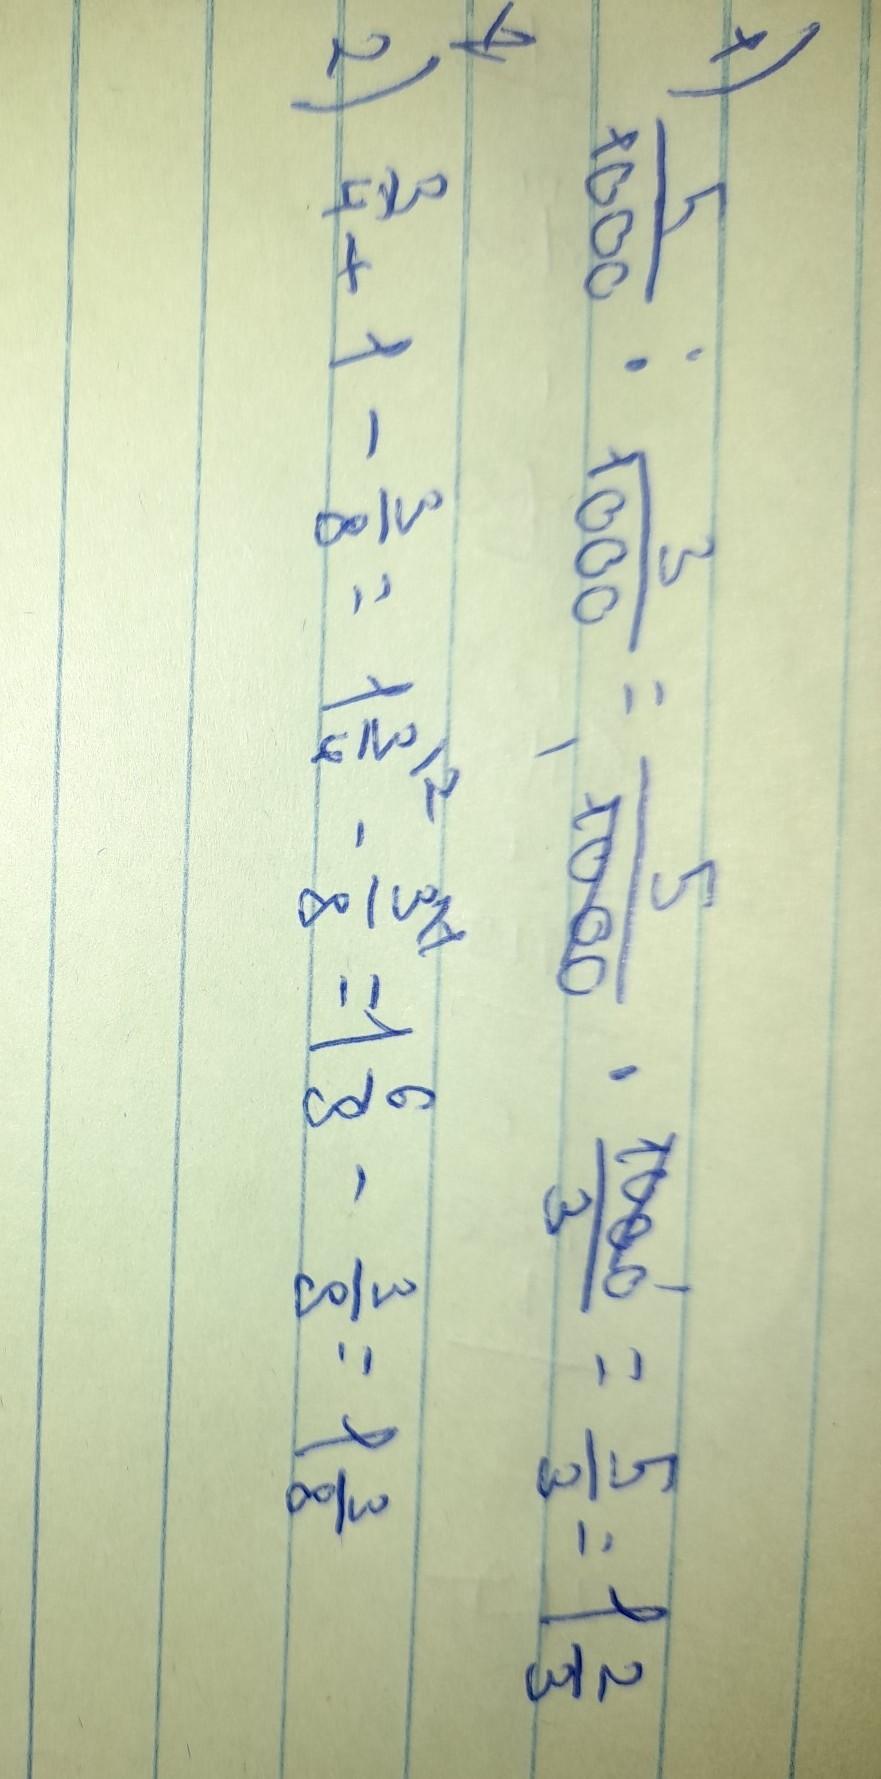 1) 5/1000 : 3/1000 = 5/1000 · 1000/3 = 5/3 = 1 2/3
2) 3/4 + 1 - 3/8 = 1 3/4 \2 - 3/8 \1 = 1 6/8 - 3/8 = 1 3/8